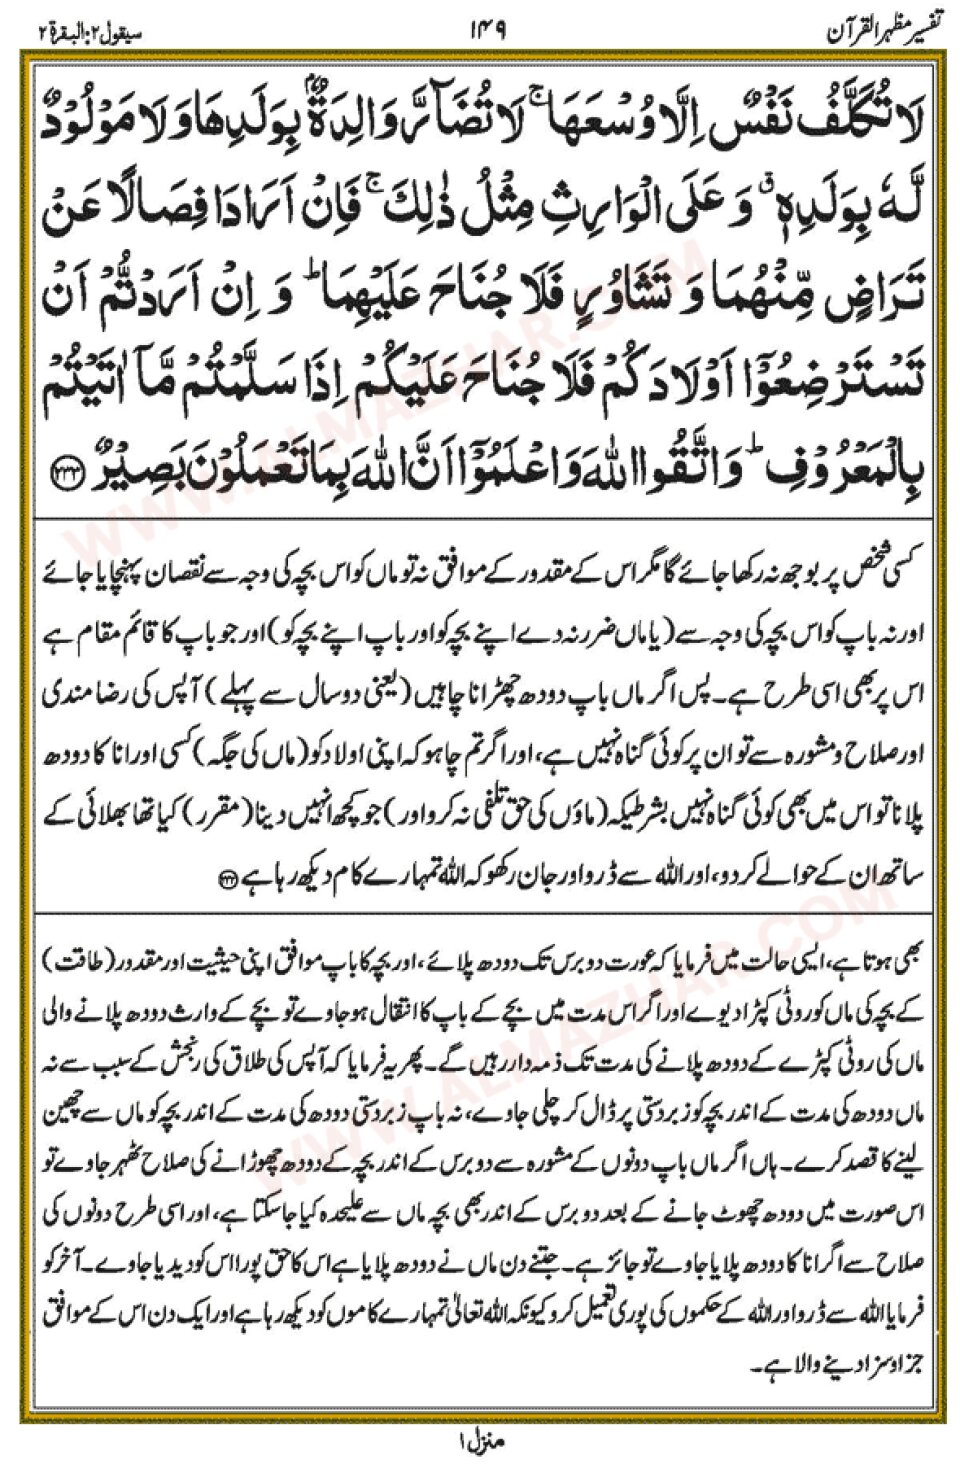 تفسیر مظہر القرآن ۱۴۹ سیقول ۲: البقرۃ ۲
لَا تُكَلَّفُ نَفْسٌ اِلَّا وُسْعَهَا ۚ لَا تُضَآرَّ وَالِدَةٌۢ بِوَلَدِهَا وَلَا مَوْلُوْدٌ
لَّهٗ بِوَلَدِهٖ ۗ وَ عَلَى الْوَارِثِ مِثْلُ ذٰلِكَ ۚ فَاِنْ اَرَادَا فِصَالًا عَنْ
تَرَاضٍ مِّنْهُمَا وَ تَشَاوُرٍ فَلَا جُنَاحَ عَلَيْهِمَا ؕ وَ اِنْ اَرَدْتُّمْ اَنْ
تَسْتَرْضِعُوْۤا اَوْلَادَكُمْ فَلَا جُنَاحَ عَلَيْكُمْ اِذَا سَلَّمْتُمْ مَّاۤ اٰتَيْتُمْ
بِالْمَعْرُوْفِ ؕ وَ اتَّقُوا اللّٰهَ وَ اعْلَمُوْۤا اَنَّ اللّٰهَ بِمَا تَعْمَلُوْنَ بَصِيْرٌ ﴿۲۳۳﴾
کسی شخص پر بوجھ نہ رکھا جائے گا مگر اس کے مقدور کے موافق نہ تو ماں کو اس بچہ کی وجہ سے نقصان پہنچایا جائے
اور نہ باپ کو اس بچہ کی وجہ سے (یا ماں ضرر نہ دے اپنے بچہ کو اور باپ اپنے بچہ کو) اور جو باپ کا قائم مقام ہے
اس پر بھی اسی طرح ہے۔ پس اگر ماں باپ دودھ چھڑانا چاہیں (یعنی دو سال سے پہلے) آپس کی رضا مندی
اور صلاح و مشورہ سے تو ان پر کوئی گناہ نہیں ہے، اور اگر تم چاہو کہ اپنی اولاد کو (ماں کی جگہ) کسی اور انا کا دودھ
پلانا تو اس میں بھی کوئی گناہ نہیں بشرطیکہ (ماؤں کی حق تلفی نہ کرو اور) جو کچھ انہیں دینا (مقرر) کیا تھا بھلائی کے
ساتھ ان کے حوالے کر دو، اور اللہ سے ڈرو اور جان رکھو کہ اللہ تمہارے کام دیکھ رہا ہے ﴿۲۳۳﴾
بھی ہوتا ہے، ایسی حالت میں فرمایا کہ عورت دو برس تک دودھ پلائے، اور بچہ کا باپ موافق اپنی حیثیت اور مقدور (طاقت)
کے بچہ کی ماں کو روٹی کپڑا دیوے اور اگر اس مدت میں بچے کے باپ کا انتقال ہو جاوے تو بچے کے وارث دودھ پلانے والی
ماں کی روٹی کپڑے کے دودھ پلانے کی مدت تک ذمہ دار رہیں گے۔ پھر یہ فرمایا کہ آپس کی طلاق کی رنجش کے سبب سے نہ
ماں دودھ کی مدت کے اندر بچہ کو زبردستی پر ڈال کر چلی جاوے، نہ باپ زبردستی دودھ کی مدت کے اندر بچہ کو ماں سے چھین
لینے کا قصد کرے۔ ہاں اگر ماں باپ دونوں کے مشورہ سے دو برس کے اندر بچہ کے دودھ چھوڑانے کی صلاح ٹھہر جاوے تو
اس صورت میں دودھ چھوٹ جانے کے بعد دو برس کے اندر بھی بچہ ماں سے علیحدہ کیا جا سکتا ہے، اور اسی طرح دونوں کی
صلاح سے اگر انا کا دودھ پلایا جاوے تو جائز ہے۔ جتنے دن ماں نے دودھ پلایا ہے اس کا حق پورا اس کو دیدیا جاوے۔ آخر کو
فرمایا اللہ سے ڈرو اور اللہ کے حکموں کی پوری تعمیل کرو کیونکہ اللہ تعالیٰ تمہارے کاموں کو دیکھ رہا ہے اور ایک دن اس کے موافق
جزا و سزا دینے والا ہے۔
منزل ۱
WWW.ALMAZHAR.COM
WWW.ALMAZHAR.COM